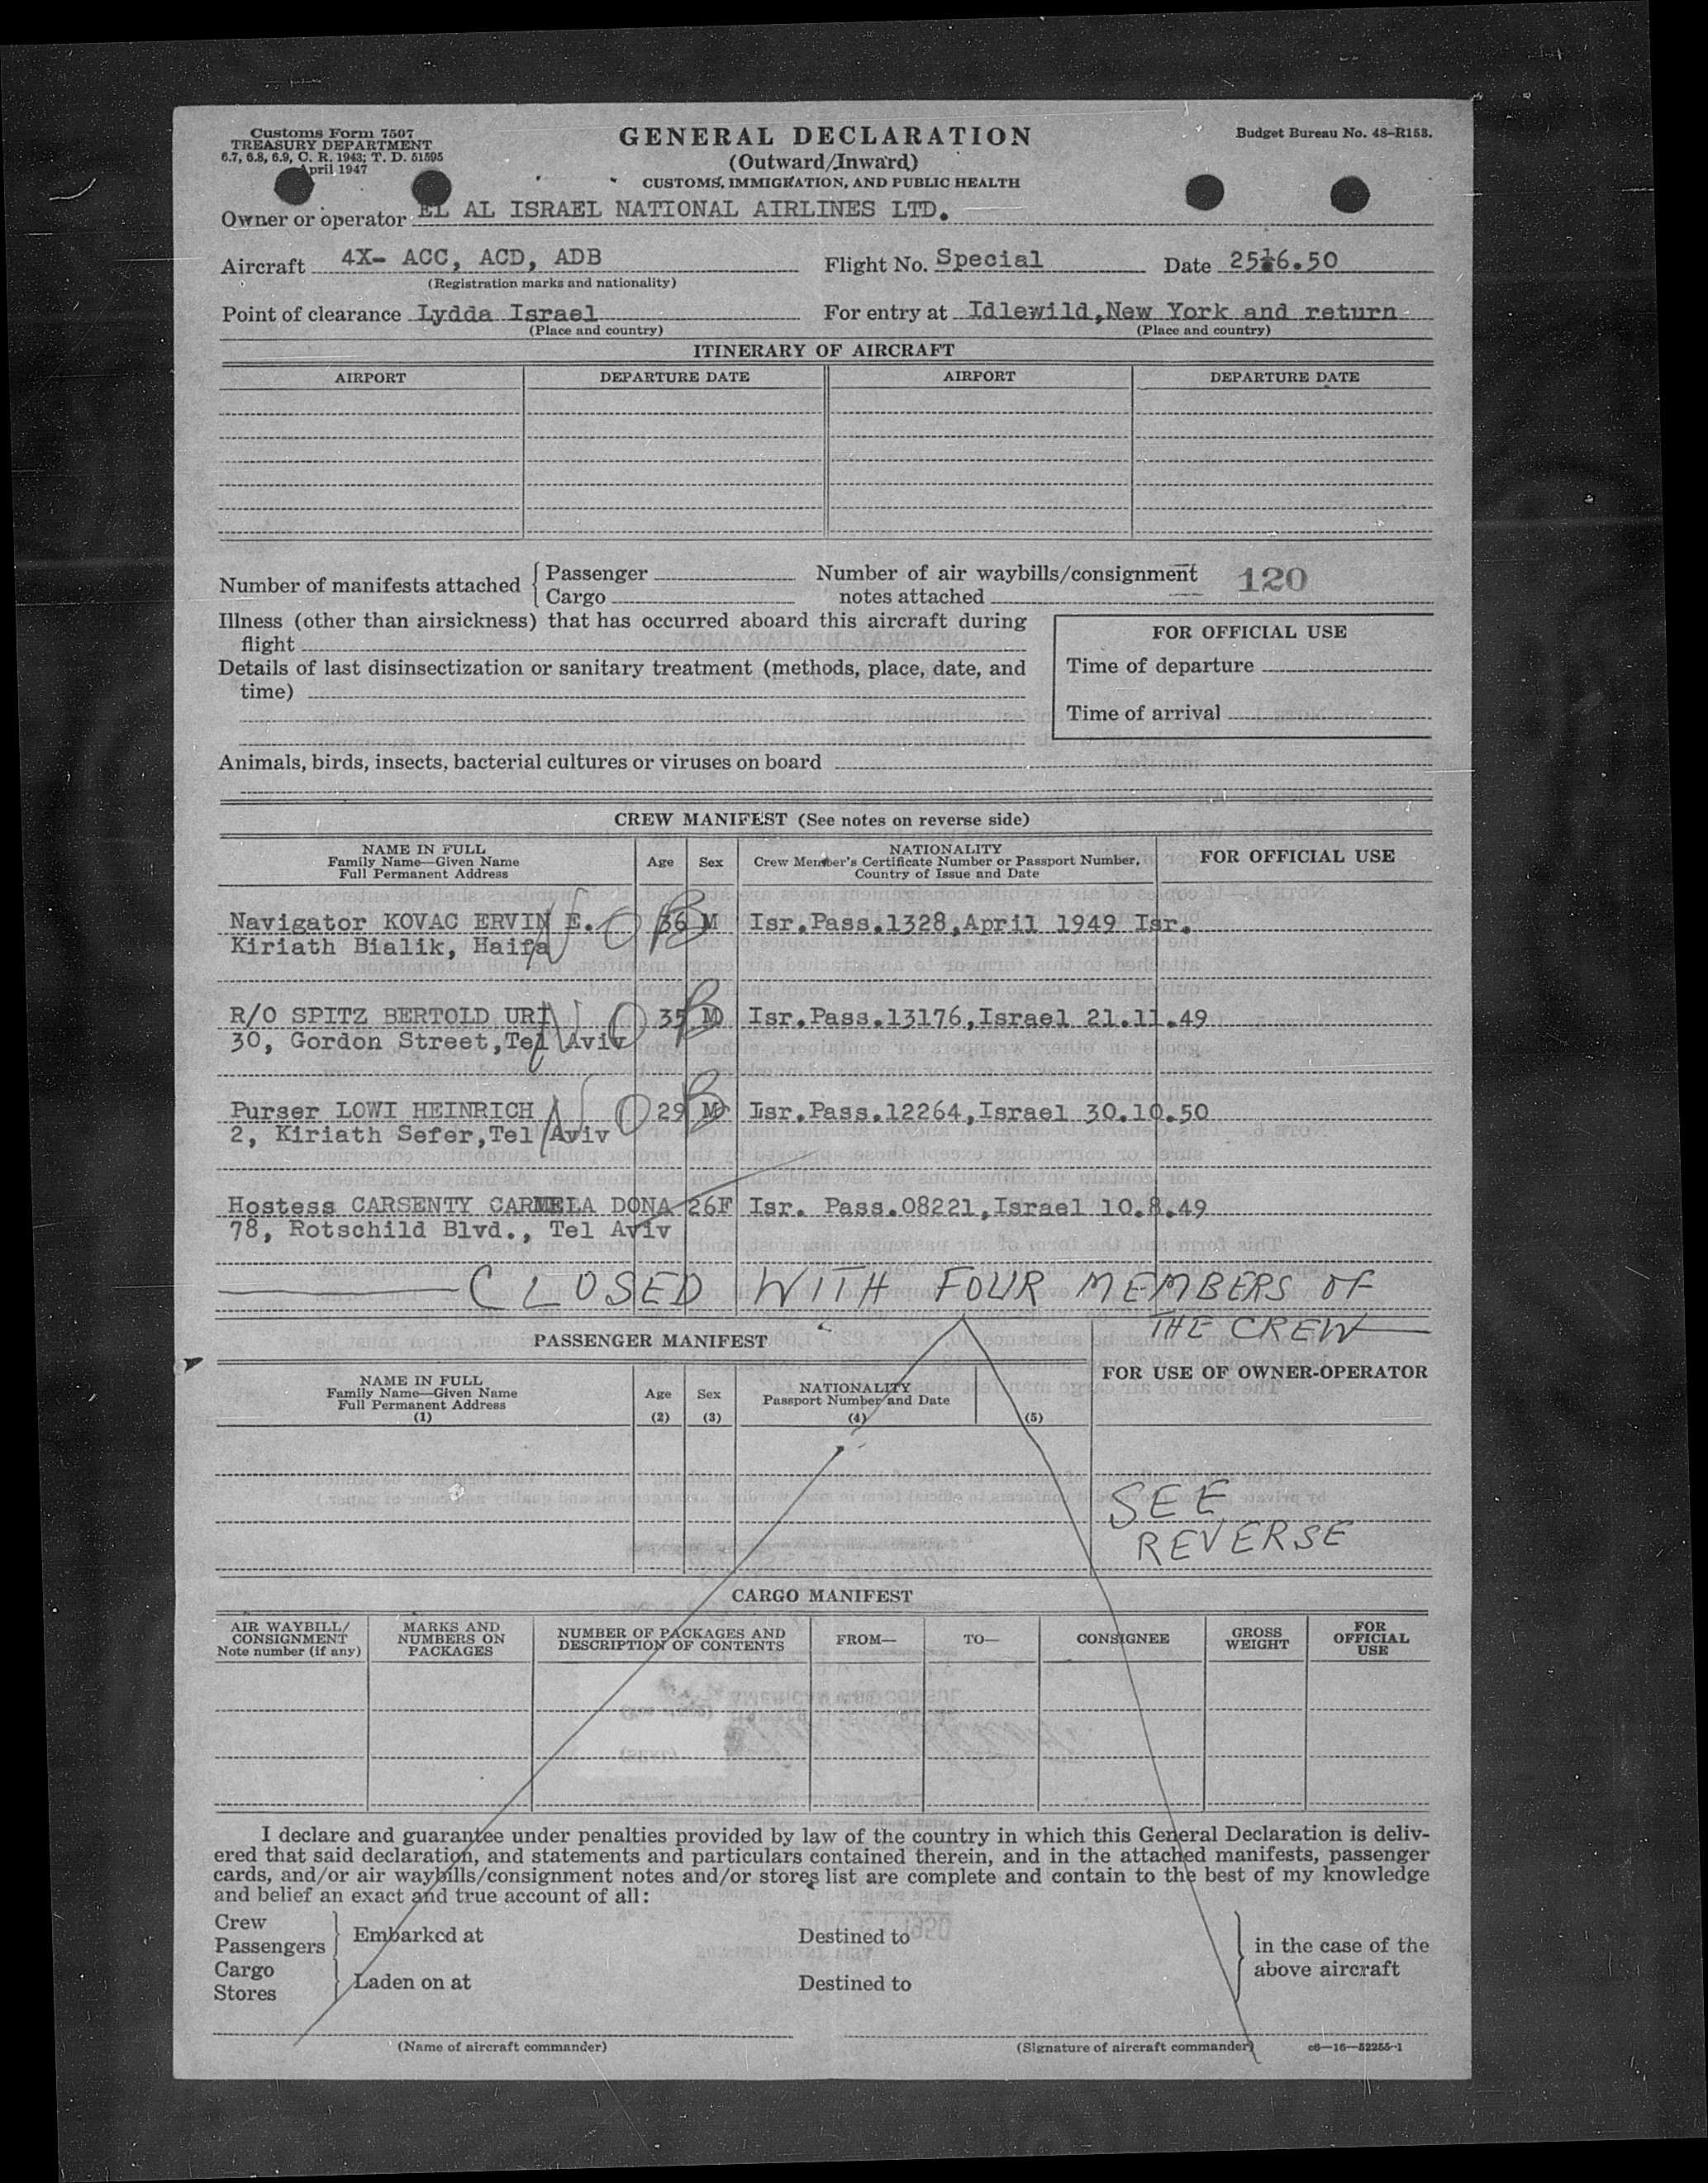 Customs Form 7507
TREASURY DEPARTMENT
6.7, 6.8, 6.9, C. R. 1943; T. D. 51595
April 1947
GENERAL DECLARATION
(Outward/Inward)
CUSTOMS, IMMIGRATION, AND PUBLIC HEALTH
Budget Bureau No. 48–R153.
Owner or operator EL AL ISRAEL NATIONAL AIRLINES LTD.
Aircraft 4X- ACC, ACD, ADB Flight No. Special Date 25.6.50
(Registration marks and nationality)
Point of clearance Lydda Israel For entry at Idlewild,New York and return
(Place and country) (Place and country)
ITINERARY OF AIRCRAFT
AIRPORT DEPARTURE DATE AIRPORT DEPARTURE DATE
Number of manifests attached { Passenger
Cargo
Number of air waybills/consignment
notes attached
120
Illness (other than airsickness) that has occurred aboard this aircraft during
flight
Details of last disinsectization or sanitary treatment (methods, place, date, and
time)
FOR OFFICIAL USE
Time of departure
Time of arrival
Animals, birds, insects, bacterial cultures or viruses on board
CREW MANIFEST (See notes on reverse side)
NAME IN FULL
Family Name—Given Name
Full Permanent Address
Age
Sex
NATIONALITY
Crew Member's Certificate Number or Passport Number,
Country of Issue and Date
FOR OFFICIAL USE
Navigator KOVAC ERVIN E. 36 M Isr.Pass.1328,April 1949 Isr.
Kiriath Bialik, Haifa
N O B
R/O SPITZ BERTOLD URI 35 M Isr.Pass.13176,Israel 21.11.49
30, Gordon Street,Tel Aviv
N O B
Purser LOWI HEINRICH 29 M Isr.Pass.12264,Israel 30.10.50
2, Kiriath Sefer,Tel Aviv
N O B
Hostess CARSENTY CARMELA DONA 26F Isr. Pass.08221,Israel 10.8.49
78, Rotschild Blvd., Tel Aviv
CLOSED WITH FOUR MEMBERS OF
THE CREW
PASSENGER MANIFEST
NAME IN FULL
Family Name—Given Name
Full Permanent Address
(1)
Age
(2)
Sex
(3)
NATIONALITY
Passport Number and Date
(4)
(5)
FOR USE OF OWNER-OPERATOR
SEE
REVERSE
CARGO MANIFEST
AIR WAYBILL/
CONSIGNMENT
Note number (if any)
MARKS AND
NUMBERS ON
PACKAGES
NUMBER OF PACKAGES AND
DESCRIPTION OF CONTENTS
FROM—
TO—
CONSIGNEE
GROSS
WEIGHT
FOR
OFFICIAL
USE
I declare and guarantee under penalties provided by law of the country in which this General Declaration is deliv-
ered that said declaration, and statements and particulars contained therein, and in the attached manifests, passenger
cards, and/or air waybills/consignment notes and/or stores list are complete and contain to the best of my knowledge
and belief an exact and true account of all:
Crew
Passengers
Embarked at Destined to
Cargo
Stores
Laden on at Destined to
in the case of the
above aircraft
(Name of aircraft commander) (Signature of aircraft commander) c6—16—52255-1